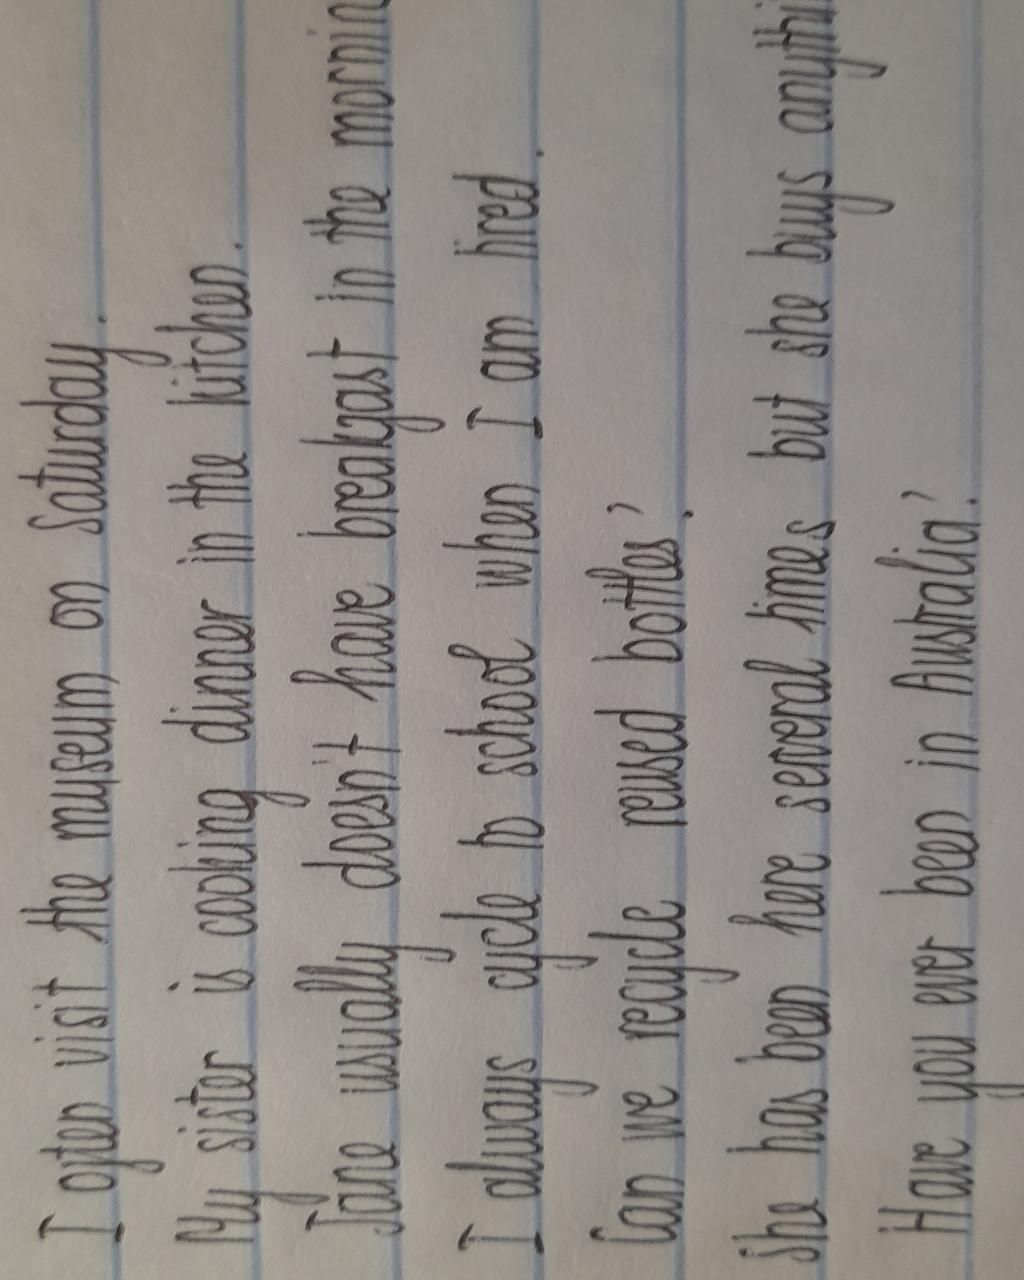 I often visit the museum on Saturday.
My sister is cooking dinner in the kitchen.
Jane usually doesn't have breakfast in the
I always cycle to school when I am tired.
Can we recycle reused bottles?
She has been here several times but she buys
Have you ever been in Australia?